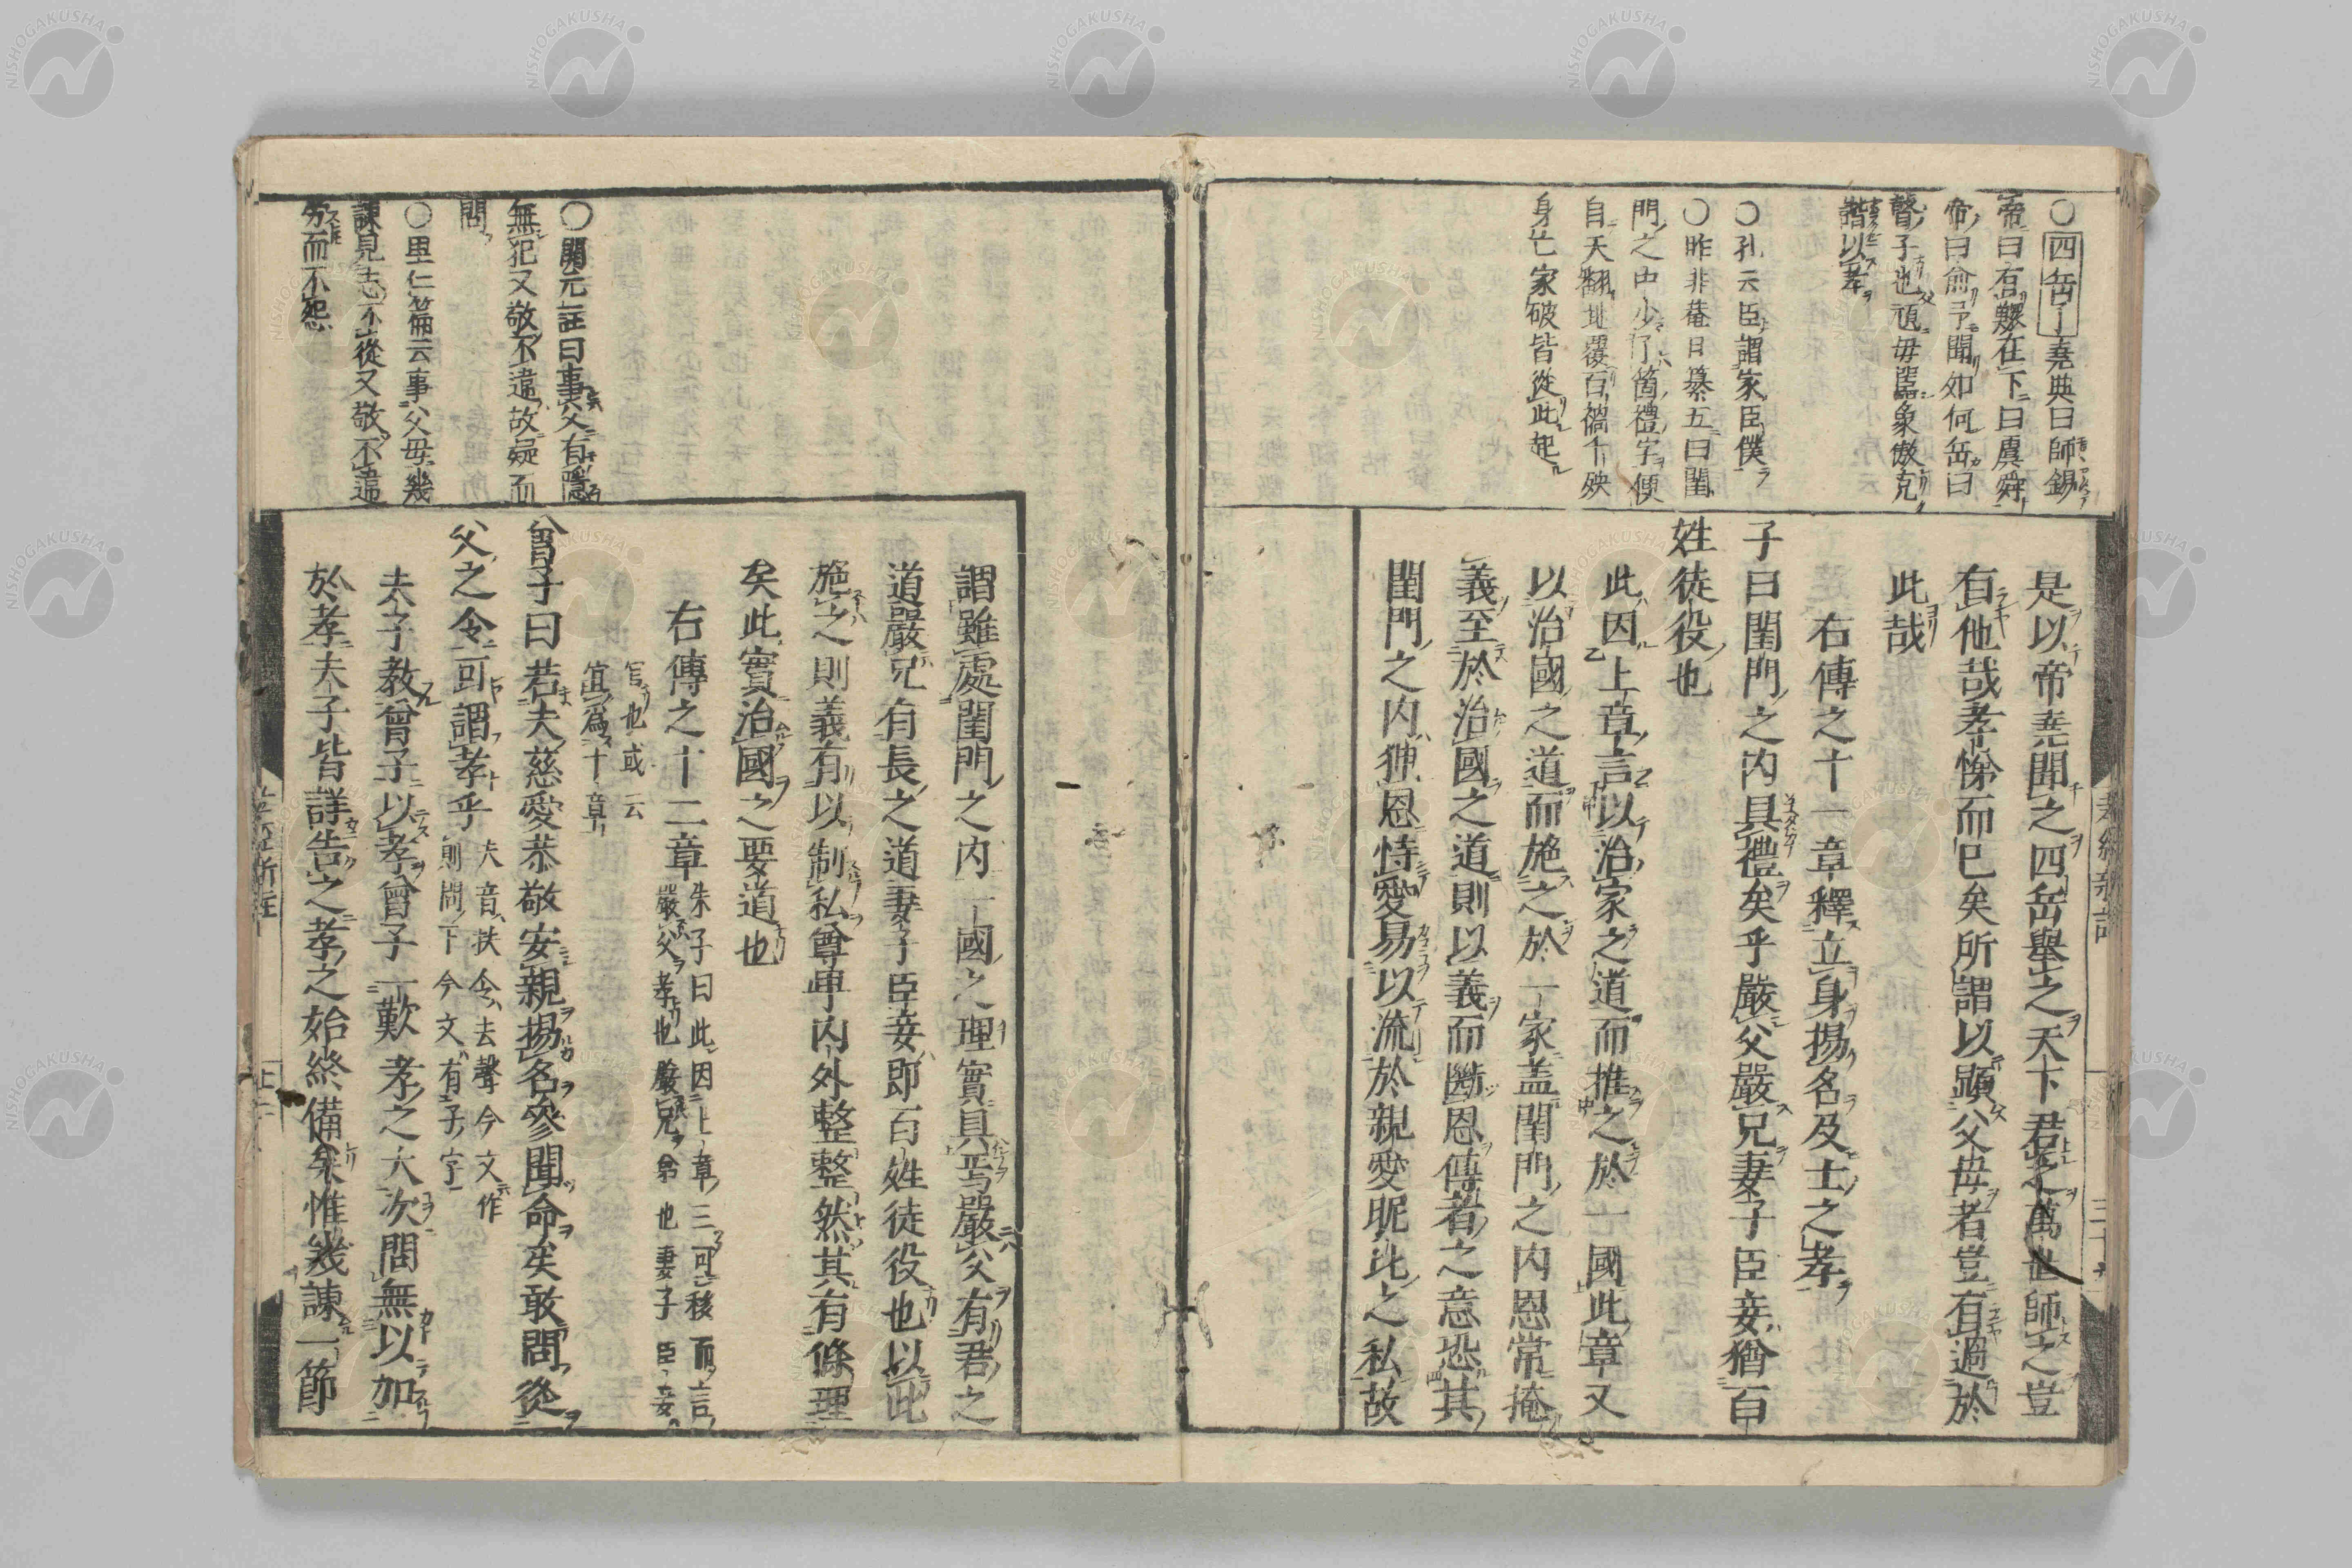 ○四岳ヿ堯典曰師錫
帝曰有鰥在下曰虞舜
帝曰俞予聞如何岳曰
瞽子也頑母嚚象傲克
諧以孝
○孔云臣謂家臣僕
○昨非菴日纂五曰閨
門之中少了箇禮字便
自天翻地覆百禍千殃
身亡家破皆從此起
是以帝堯聞之四岳舉之天下君之萬世師之豈
有他哉孝悌而已矣所謂以顯父母者豈有過於
此哉
右傳之十一章釋立身揚名及士之孝
子曰閨門之内具禮矣乎嚴父嚴兄妻子臣妾猶百
姓徒役也
此因上章言以治家之道而推之於一國此章又
以治國之道而施之於一家盖閨門之内恩常掩
義至於治國之道則以義而斷恩傳者之意恐其
閨門之内狎恩恃愛易以流於親愛昵比之私故
孝經
謂雖處閨門之内一國之理實具焉嚴父有君之
道嚴兄有長之道妻子臣妾即百姓徒役也以此
施之則義有以制私尊卑内外整整然其有條理
矣此實治國之要道也
右傳之十二章
朱子曰此因上章三可移而言
嚴父孝也嚴兄弟也妻子臣妾
官也或云
宜爲十章
曾子曰若夫慈愛恭敬安親揚名參聞命矣敢問從
父之令可謂孝乎
夫音扶令去聲今文作
則問下今文有子字
夫子教曾子以孝曾子一歎孝之大次問無以加
於孝夫子皆詳告之孝之始終備矣惟幾諫一節
○開元註曰事父有隱
無犯又敬不違故疑而
問
○里仁篇云事父母幾
諫見志不從又敬不違
勞而不怨
NISHOGAKUSHA